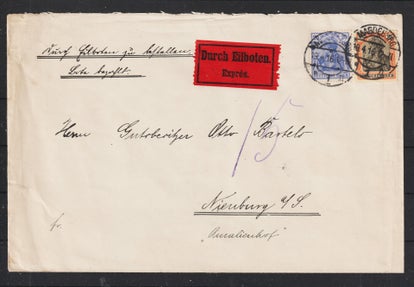 Durch Eilboten zu bestellen.
Bote bezahlt.
Durch Eilboten.
Exprès.
Herrn Gutsbesitzer Otto Bartels
15
Nienburg a/S.
Amalienhof
fr.